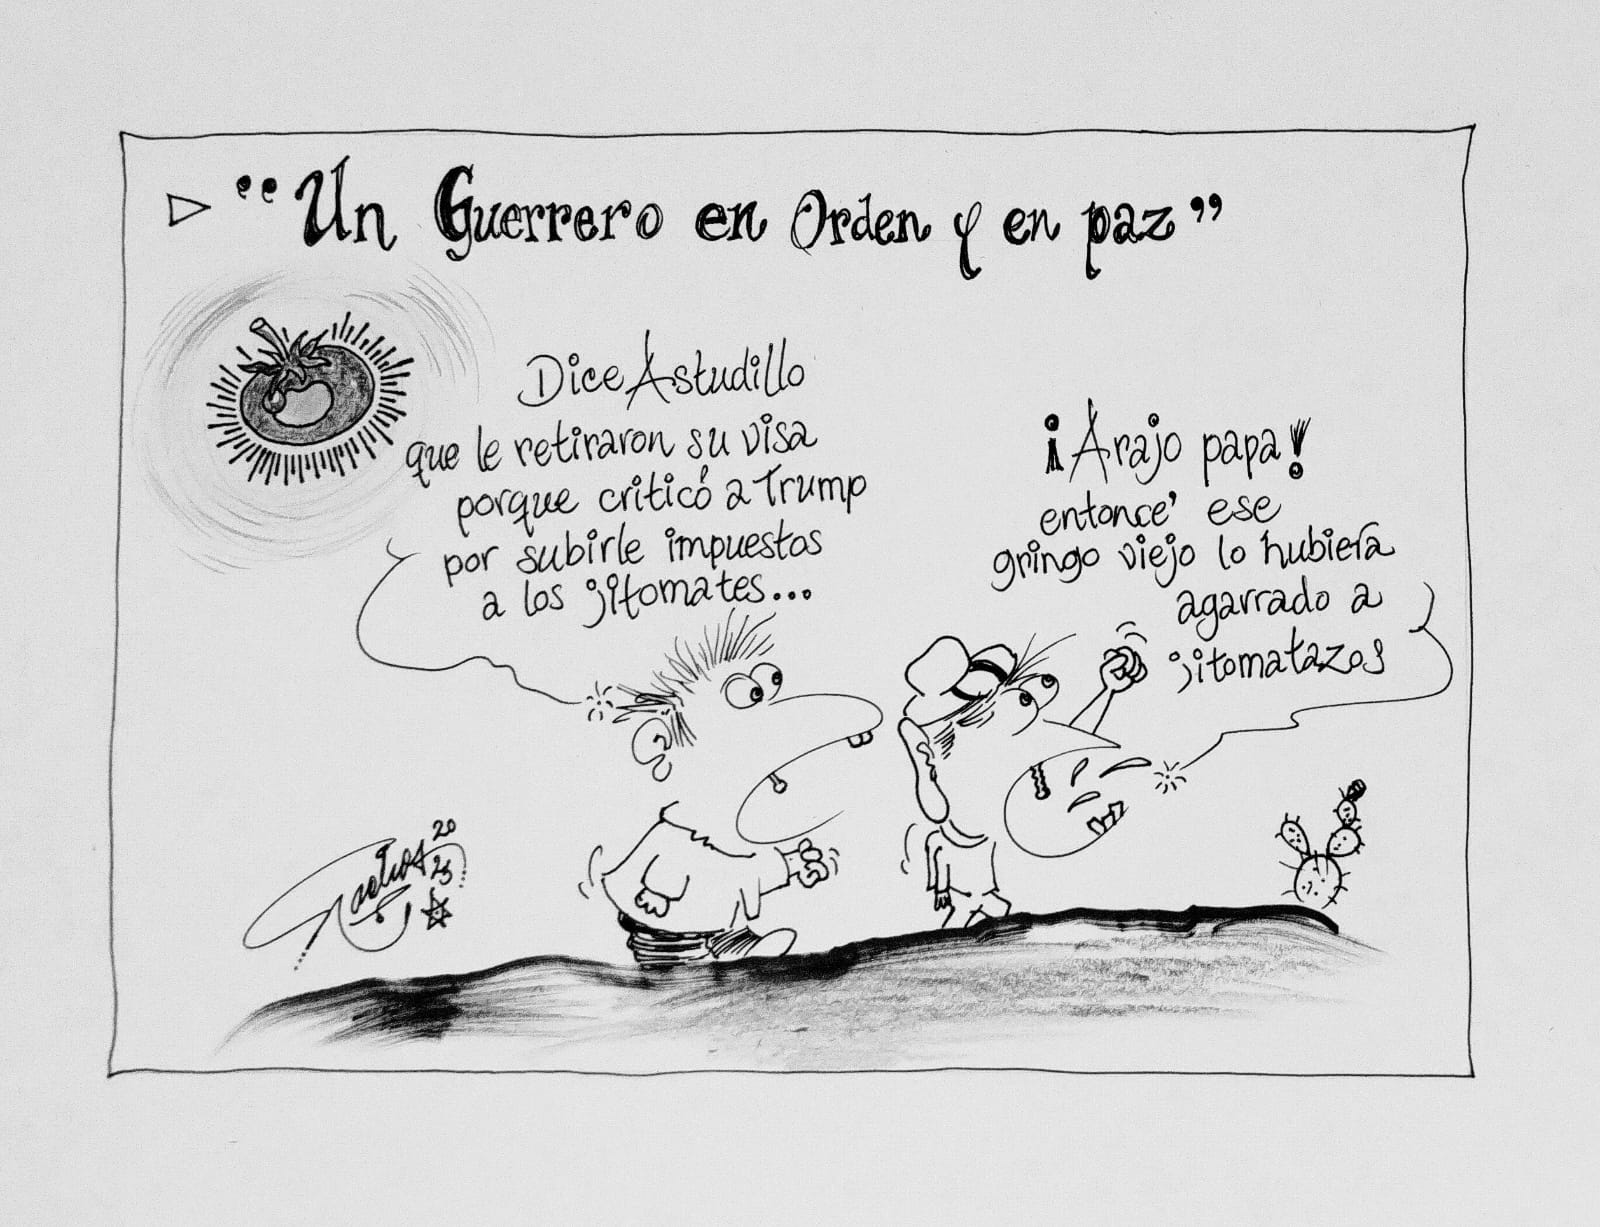 “Un Guerrero en Orden y en paz”
Dice Astudillo
que le retiraron su visa
porque criticó a Trump
por subirle impuestos
a los jitomates...
¡Arajo papa!
entonce' ese
gringo viejo lo hubiera
agarrado a
jitomatazos
20
25